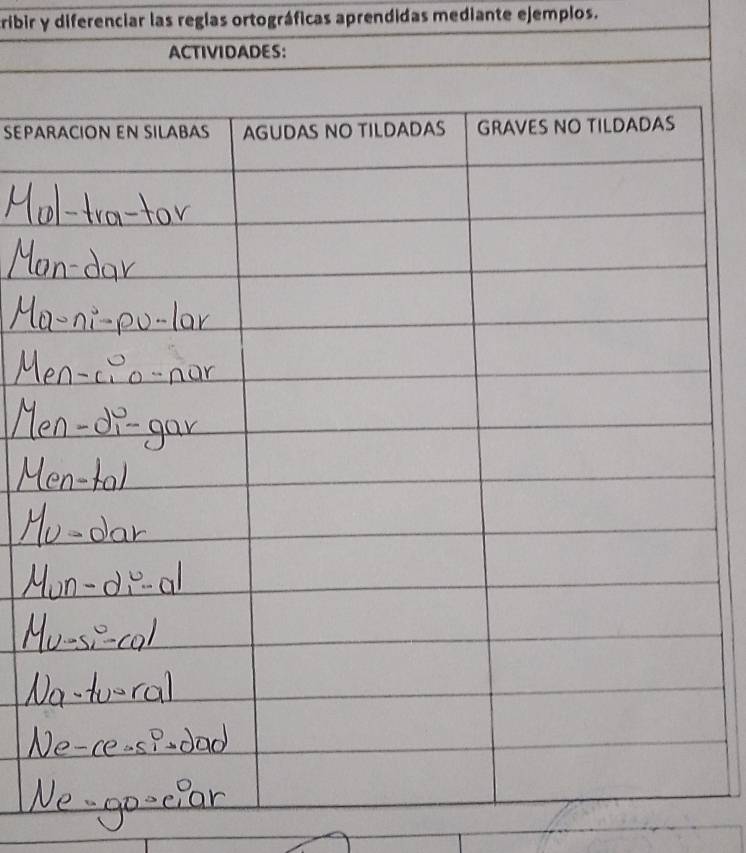 ribir y diferenciar las reglas ortográficas aprendidas mediante ejemplos.
ACTIVIDADES:
SEPARACION EN SILABAS AGUDAS NO TILDADAS GRAVES NO TILDADAS
Mal-tra-tar
Man-dar
Ma-ni-pu-lar
Men-cio-nar
Men-di-gar
Men-tal
Mu-dar
Mun-di-al
Mu-si-cal
Na-tu-ral
Ne-ce-si-dad
Ne-go-ciar